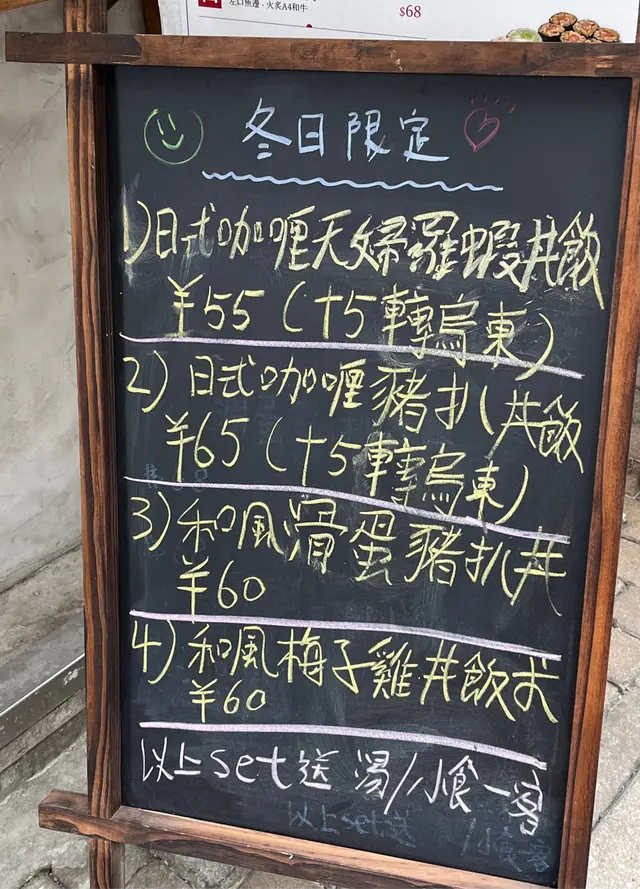 左口魚邊．火炙A4和牛
$68
冬日限定
1)日式咖喱天婦羅蝦丼飯
¥55 (+5轉烏東)
2) 日式咖喱豬扒丼飯
¥65 (+5轉烏東)
3) 和風滑蛋豬扒丼
¥60
4) 和風梅子雞丼飯
¥60
以上set送 湯/小食一客
以上set送